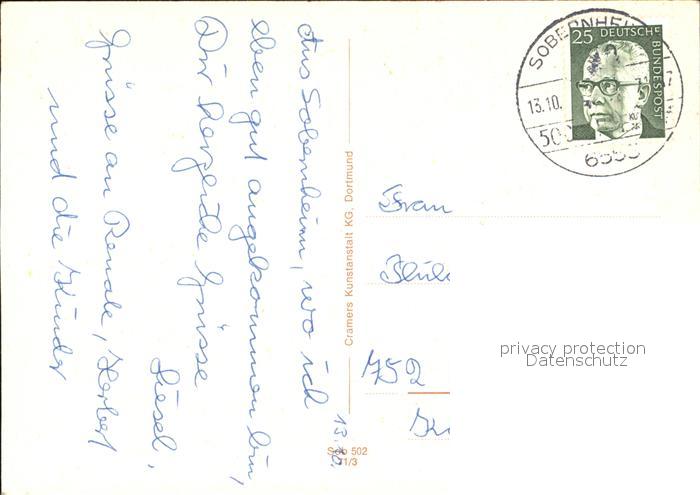 Aus Sobernheim, wo ich
eben gut angekommen bin,
Dir herzliche Grüsse
Liesel,
Grüsse an Renate, Herbert
und die Kinder
13.10.
Cramers Kunstanstalt KG. Dortmund
Sob 502
71/3
SOBERNHEIM
13.10.
500
6553
25 DEUTSCHE
BUNDESPOST
Frau
752
privacy protection
Datenschutz